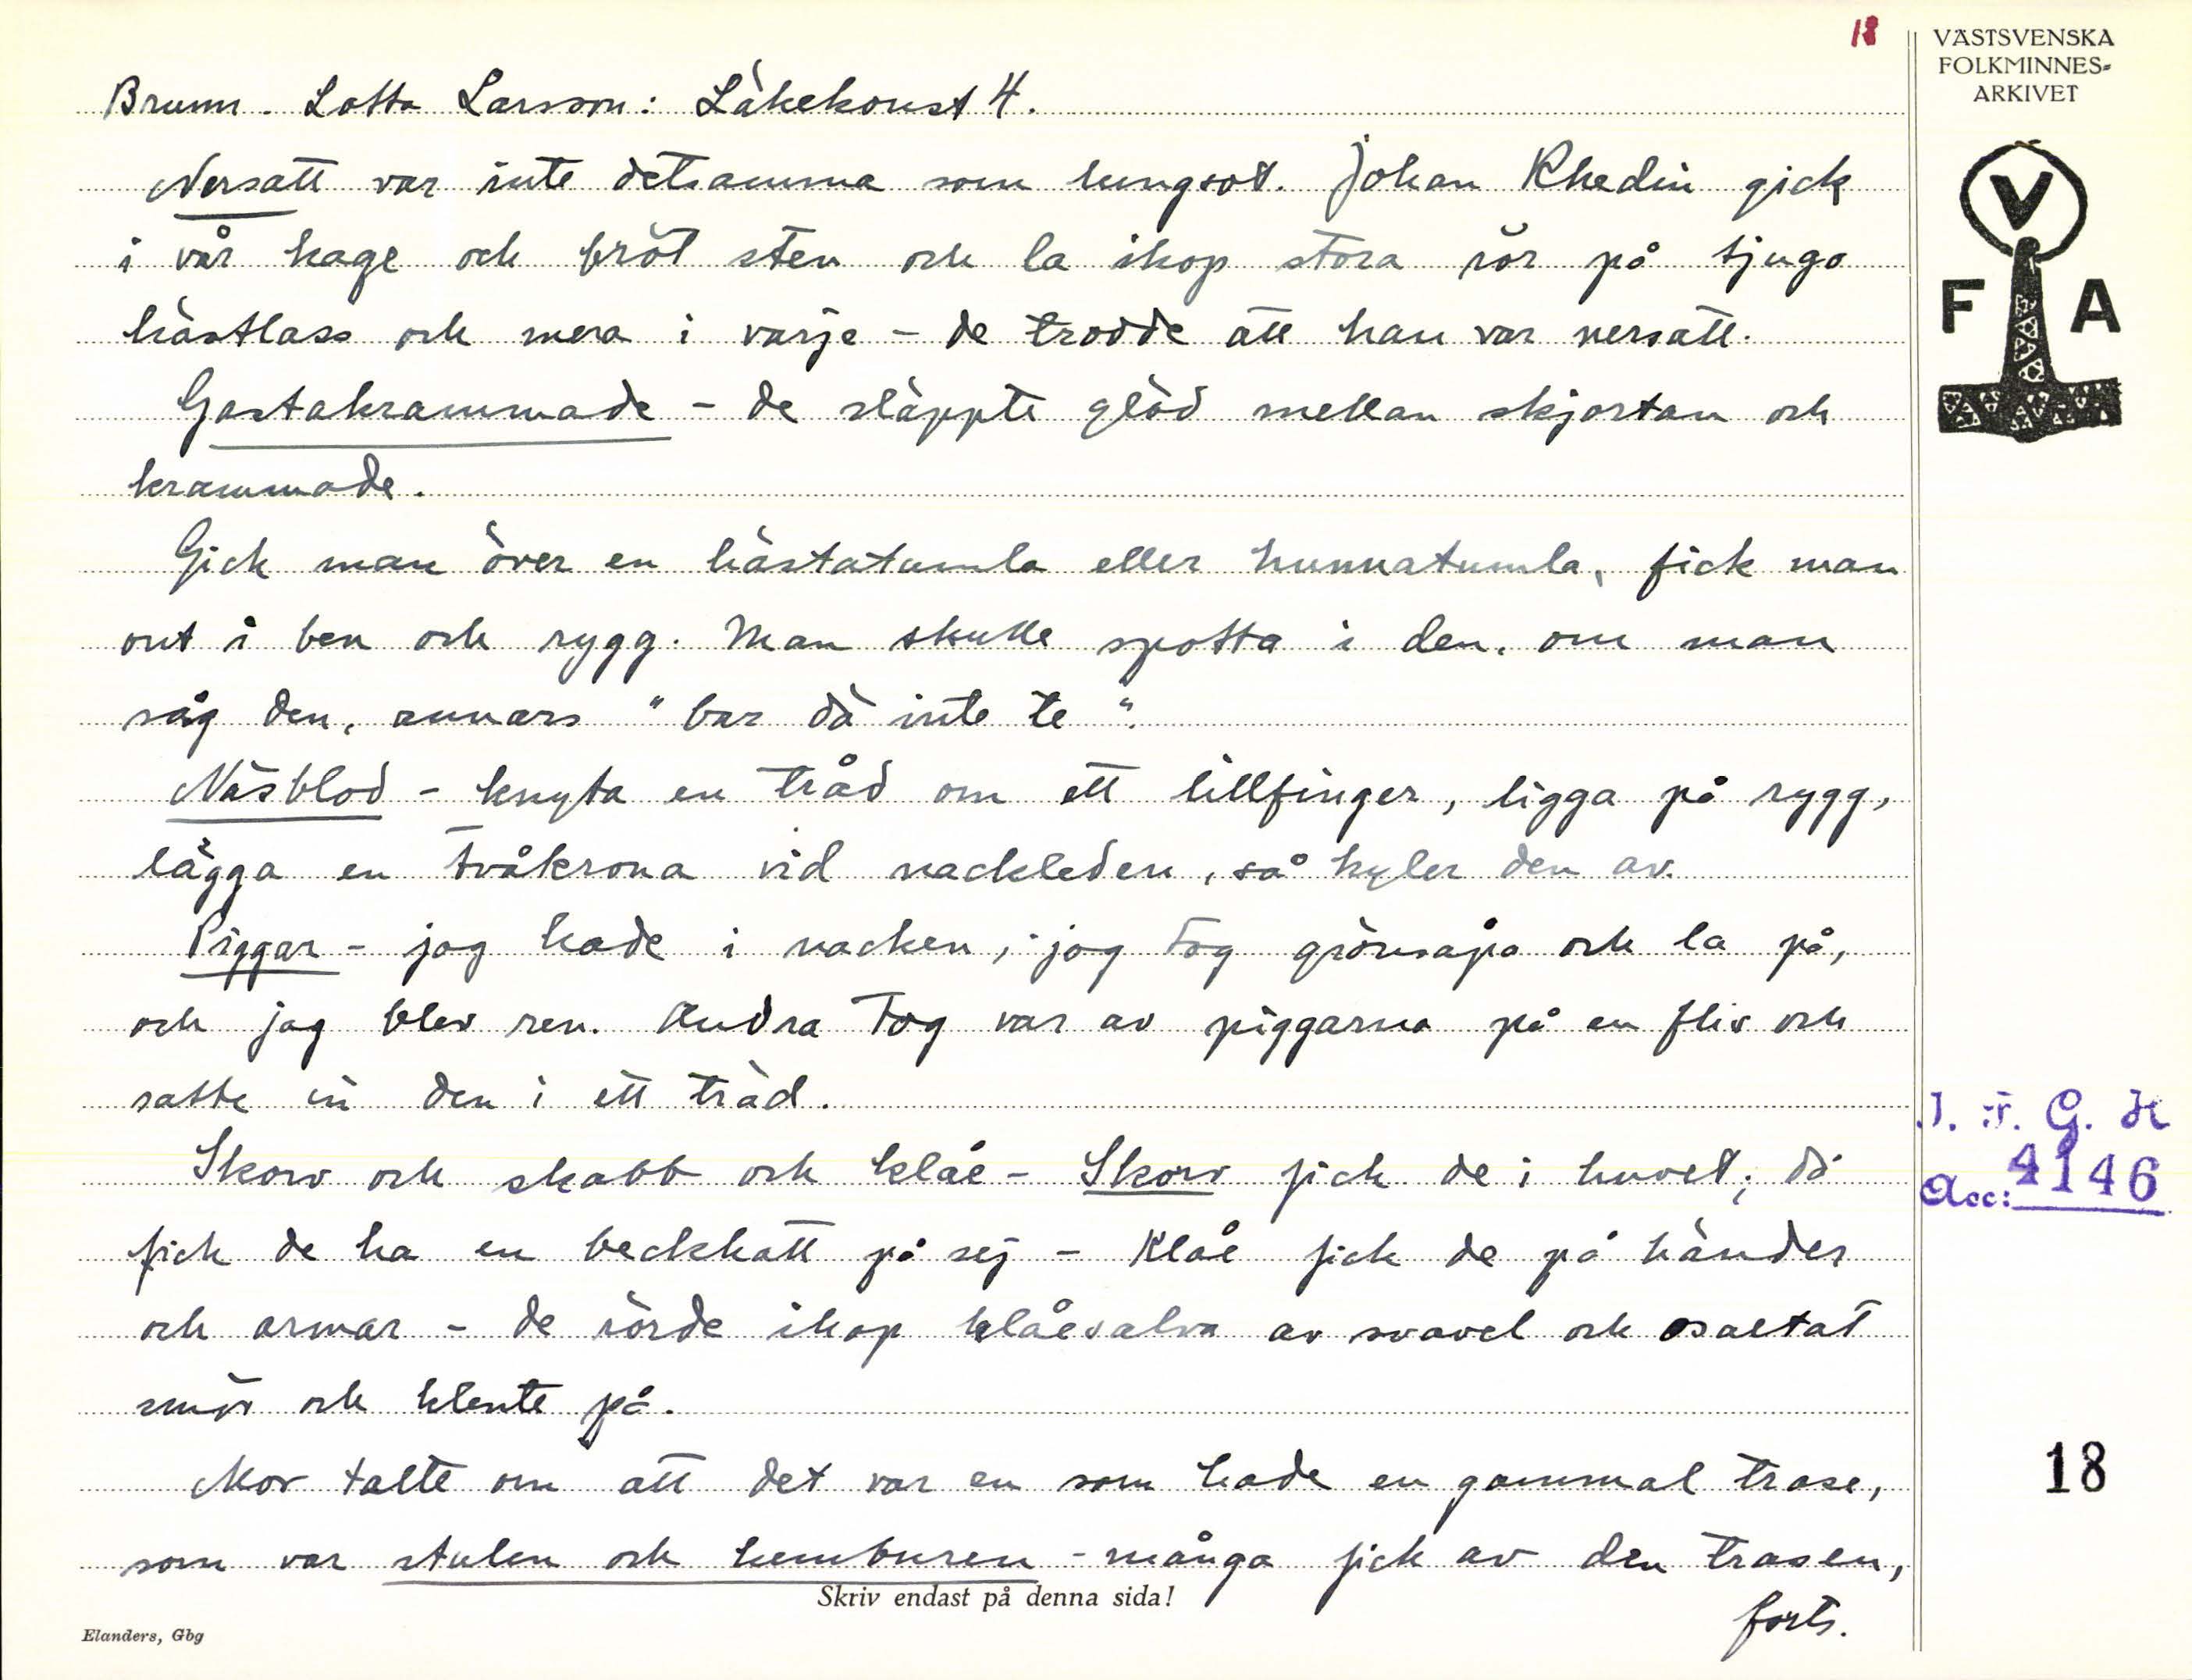 18
VÄSTSVENSKA
FOLKMINNES-
ARKIVET
V
F A
Brunn. Lotta Larsson: Läkekonst 4.
Nersatt var inte detsamma som lungsot. Johan Rhedin gick
i vår hage och bröt sten och la ihop stora rör på tjugo
hästlass och mera i varje - de trodde att han var nersatt.
Gastakrammade - de släppte glöd mellan skjortan och
krammade.
Gick man över en hästatumla eller hunnatumla, fick man
ont i ben och rygg. Man skulle spotta i den, om man
såg den, annars "bar dä inte te".
Näsblod - knyta en tråd om ett lillfinger, ligga på rygg,
lägga en tvåkrona vid nackleden, så kyler den av.
Piggar - jag hade i nacken, jag tog grönsåpa och la på,
och jag blev ren. Andra tog var av piggarna på en flis och
satte in den i ett träd.
Skorv och skabb och klåe - Skorv fick de i huvet; då
fick de ha en beckhatt på sej - Klåe fick de på händer
och armar - de rörde ihop klåesalva av svavel och osaltat
smör och klente på.
Mor talte om att det var en som hade en gammal trase,
som var stulen och hemburen - många fick av den trasen,
forts.
Skriv endast på denna sida!
Elanders, Gbg
I. F. G. H
Acc: 4146
18